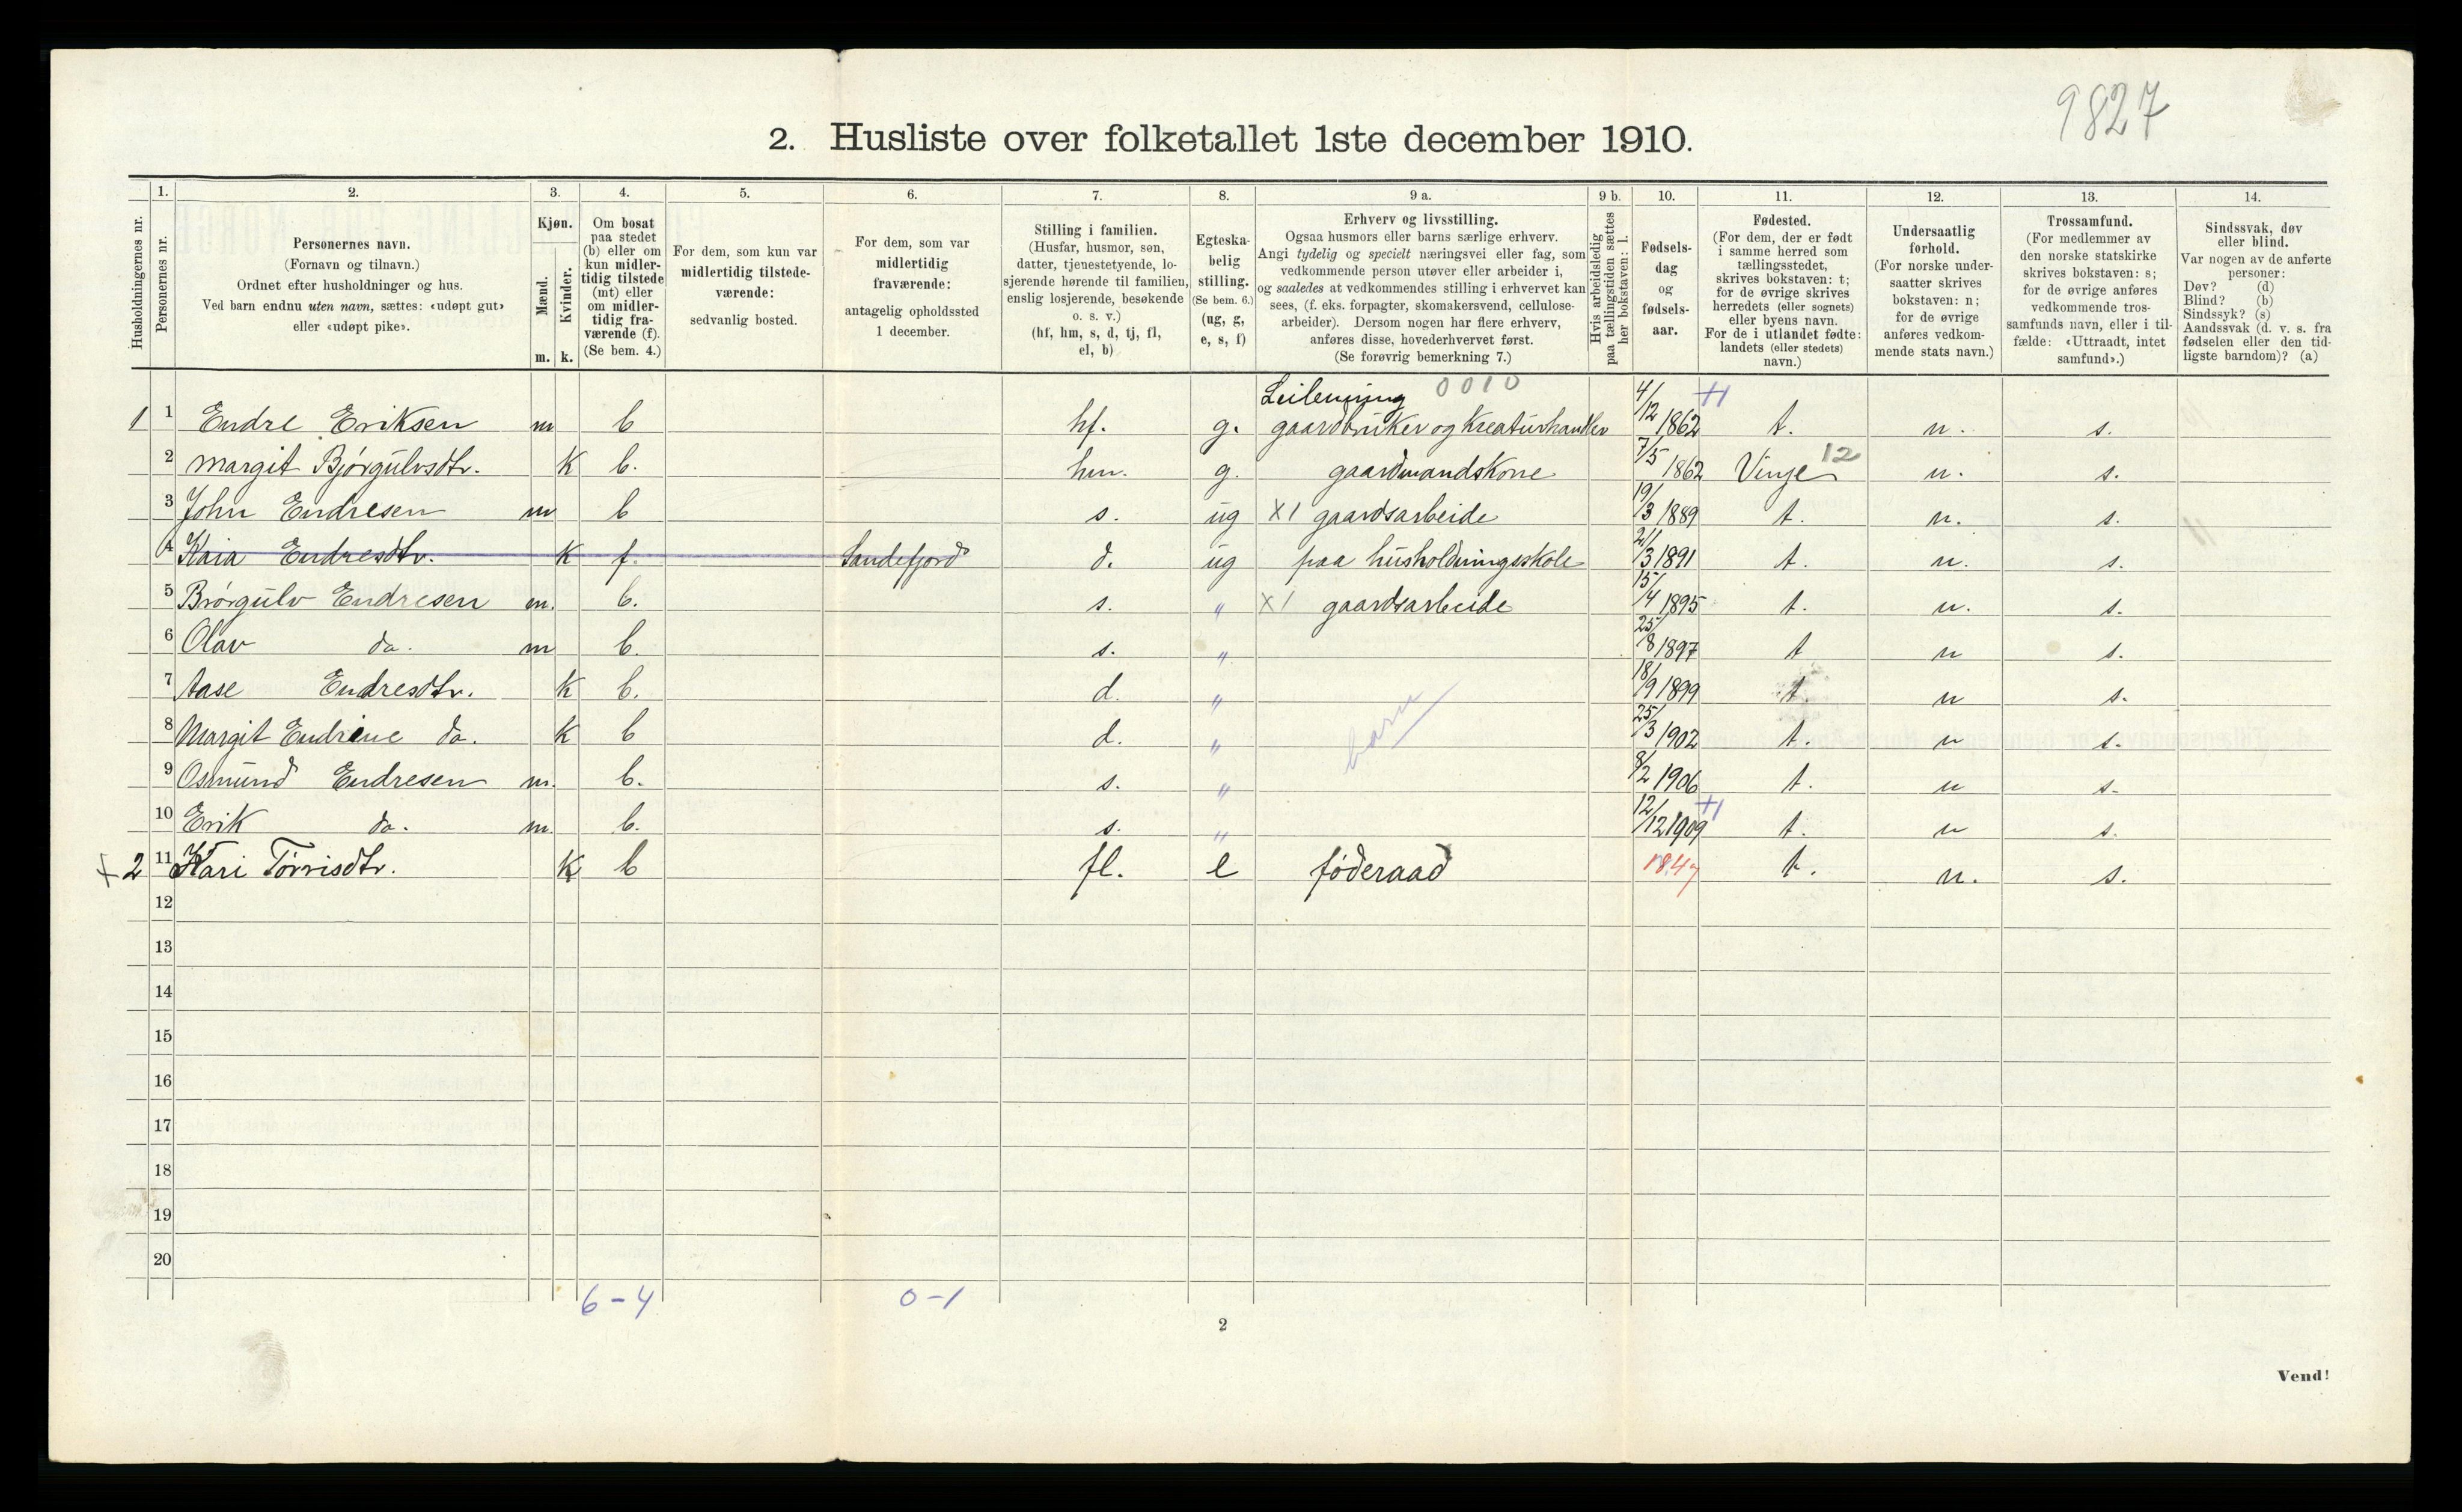 9827
2. Husliste over folketallet 1ste december 1910.
Husholdningernes nr.
1.
Personernes nr.
2.
Personernes navn.
(Fornavn og tilnavn.)
Ordnet efter husholdninger og hus.
Ved barn endnu uten navn, sættes: «udøpt gut»
eller «udøpt pike».
3.
Kjøn.
Mænd.
Kvinder.
m. k.
4.
Om bosat
paa stedet
(b) eller om
kun midler-
tidig tilstede
(mt) eller
om midler-
tidig fra-
værende (f).
(Se bem. 4.)
5.
For dem, som kun var
midlertidig tilstede-
værende:
sedvanlig bosted.
6.
For dem, som var
midlertidig
fraværende:
antagelig opholdssted
1 december.
7.
Stilling i familien.
(Husfar, husmor, søn,
datter, tjenestetyende, lo-
sjerende hørende til familien,
enslig losjerende, besøkende
o. s. v.)
(hf, hm, s, d, tj, fl,
el, b)
8.
Egteska-
belig
stilling.
(Se bem. 6.)
(ug, g,
e, s, f)
9 a.
Erhverv og livsstilling.
Ogsaa husmors eller barns særlige erhverv.
Angi tydelig og specielt næringsvei eller fag, som
vedkommende person utøver eller arbeider i,
og saaledes at vedkommendes stilling i erhvervet kan
sees, (f. eks. forpagter, skomakersvend, cellulose-
arbeider). Dersom nogen har flere erhverv,
anføres disse, hovederhvervet først.
(Se forøvrig bemerkning 7.)
9 b.
Hvis arbeidsledig
paa tællingstiden sættes
her bokstaven: l.
10.
Fødsels-
dag
og
fødsels-
aar.
11.
Fødested.
(For dem, der er født
i samme herred som
tællingsstedet,
skrives bokstaven: t;
for de øvrige skrives
herredets (eller sognets)
eller byens navn.
For de i utlandet fødte:
landets (eller stedets)
navn.)
12.
Undersaatlig
forhold.
(For norske under-
saatter skrives
bokstaven: n;
for de øvrige
anføres vedkom-
mende stats navn.)
13.
Trossamfund.
(For medlemmer av
den norske statskirke
skrives bokstaven: s;
for de øvrige anføres
vedkommende tros-
samfunds navn, eller i til-
fælde: «Uttraadt, intet
samfund».)
14.
Sindssvak, døv
eller blind.
Var nogen av de anførte
personer:
Døv? (d)
Blind? (b)
Sindssyk? (s)
Aandssvak (d. v. s. fra
fødselen eller den tid-
ligste barndom)? (a)
Leilenning 0010
1 1 Endre Eriksen m b hf. g. gaardbruker og Kreaturhandler 4/12 1862 t. n. s.
2 Margit Bjørgulvsdtr. K b. hm. g. gaardmandskone 7/5 1862 Vinje 12 n. s.
3 John Endresen m b s. ug X1 gaardsarbeide 19/3 1889 t. n. s.
4 Kaia Endresdtr. K f. Sandefjord d. ug paa husholdningsskole 21/3 1891 t. n. s.
5 Brørgulv Endresen m. b. s. " X1 gaardsarbeide 15/4 1895 t. n. s.
6 Olav do. m b. s. " 25/8 1897 t n s.
7 Aase Endresdtr. K b. d. " 18/9 1899 t n s.
8 Margit Endrine do. K b d. " barn 25/3 1902 t. n s.
9 Osmund Endresen m. b. s. " 8/2 1906 t. n s.
10 Erik do. m. b. s. " 12/12 1909 t. n s.
x 2 11 Kari Torrisdtr. K b fl. e føderaad 1847 t. n. s.
12
13
14
15
16
17
18
19
20
6-4 0-1
2
Vend!